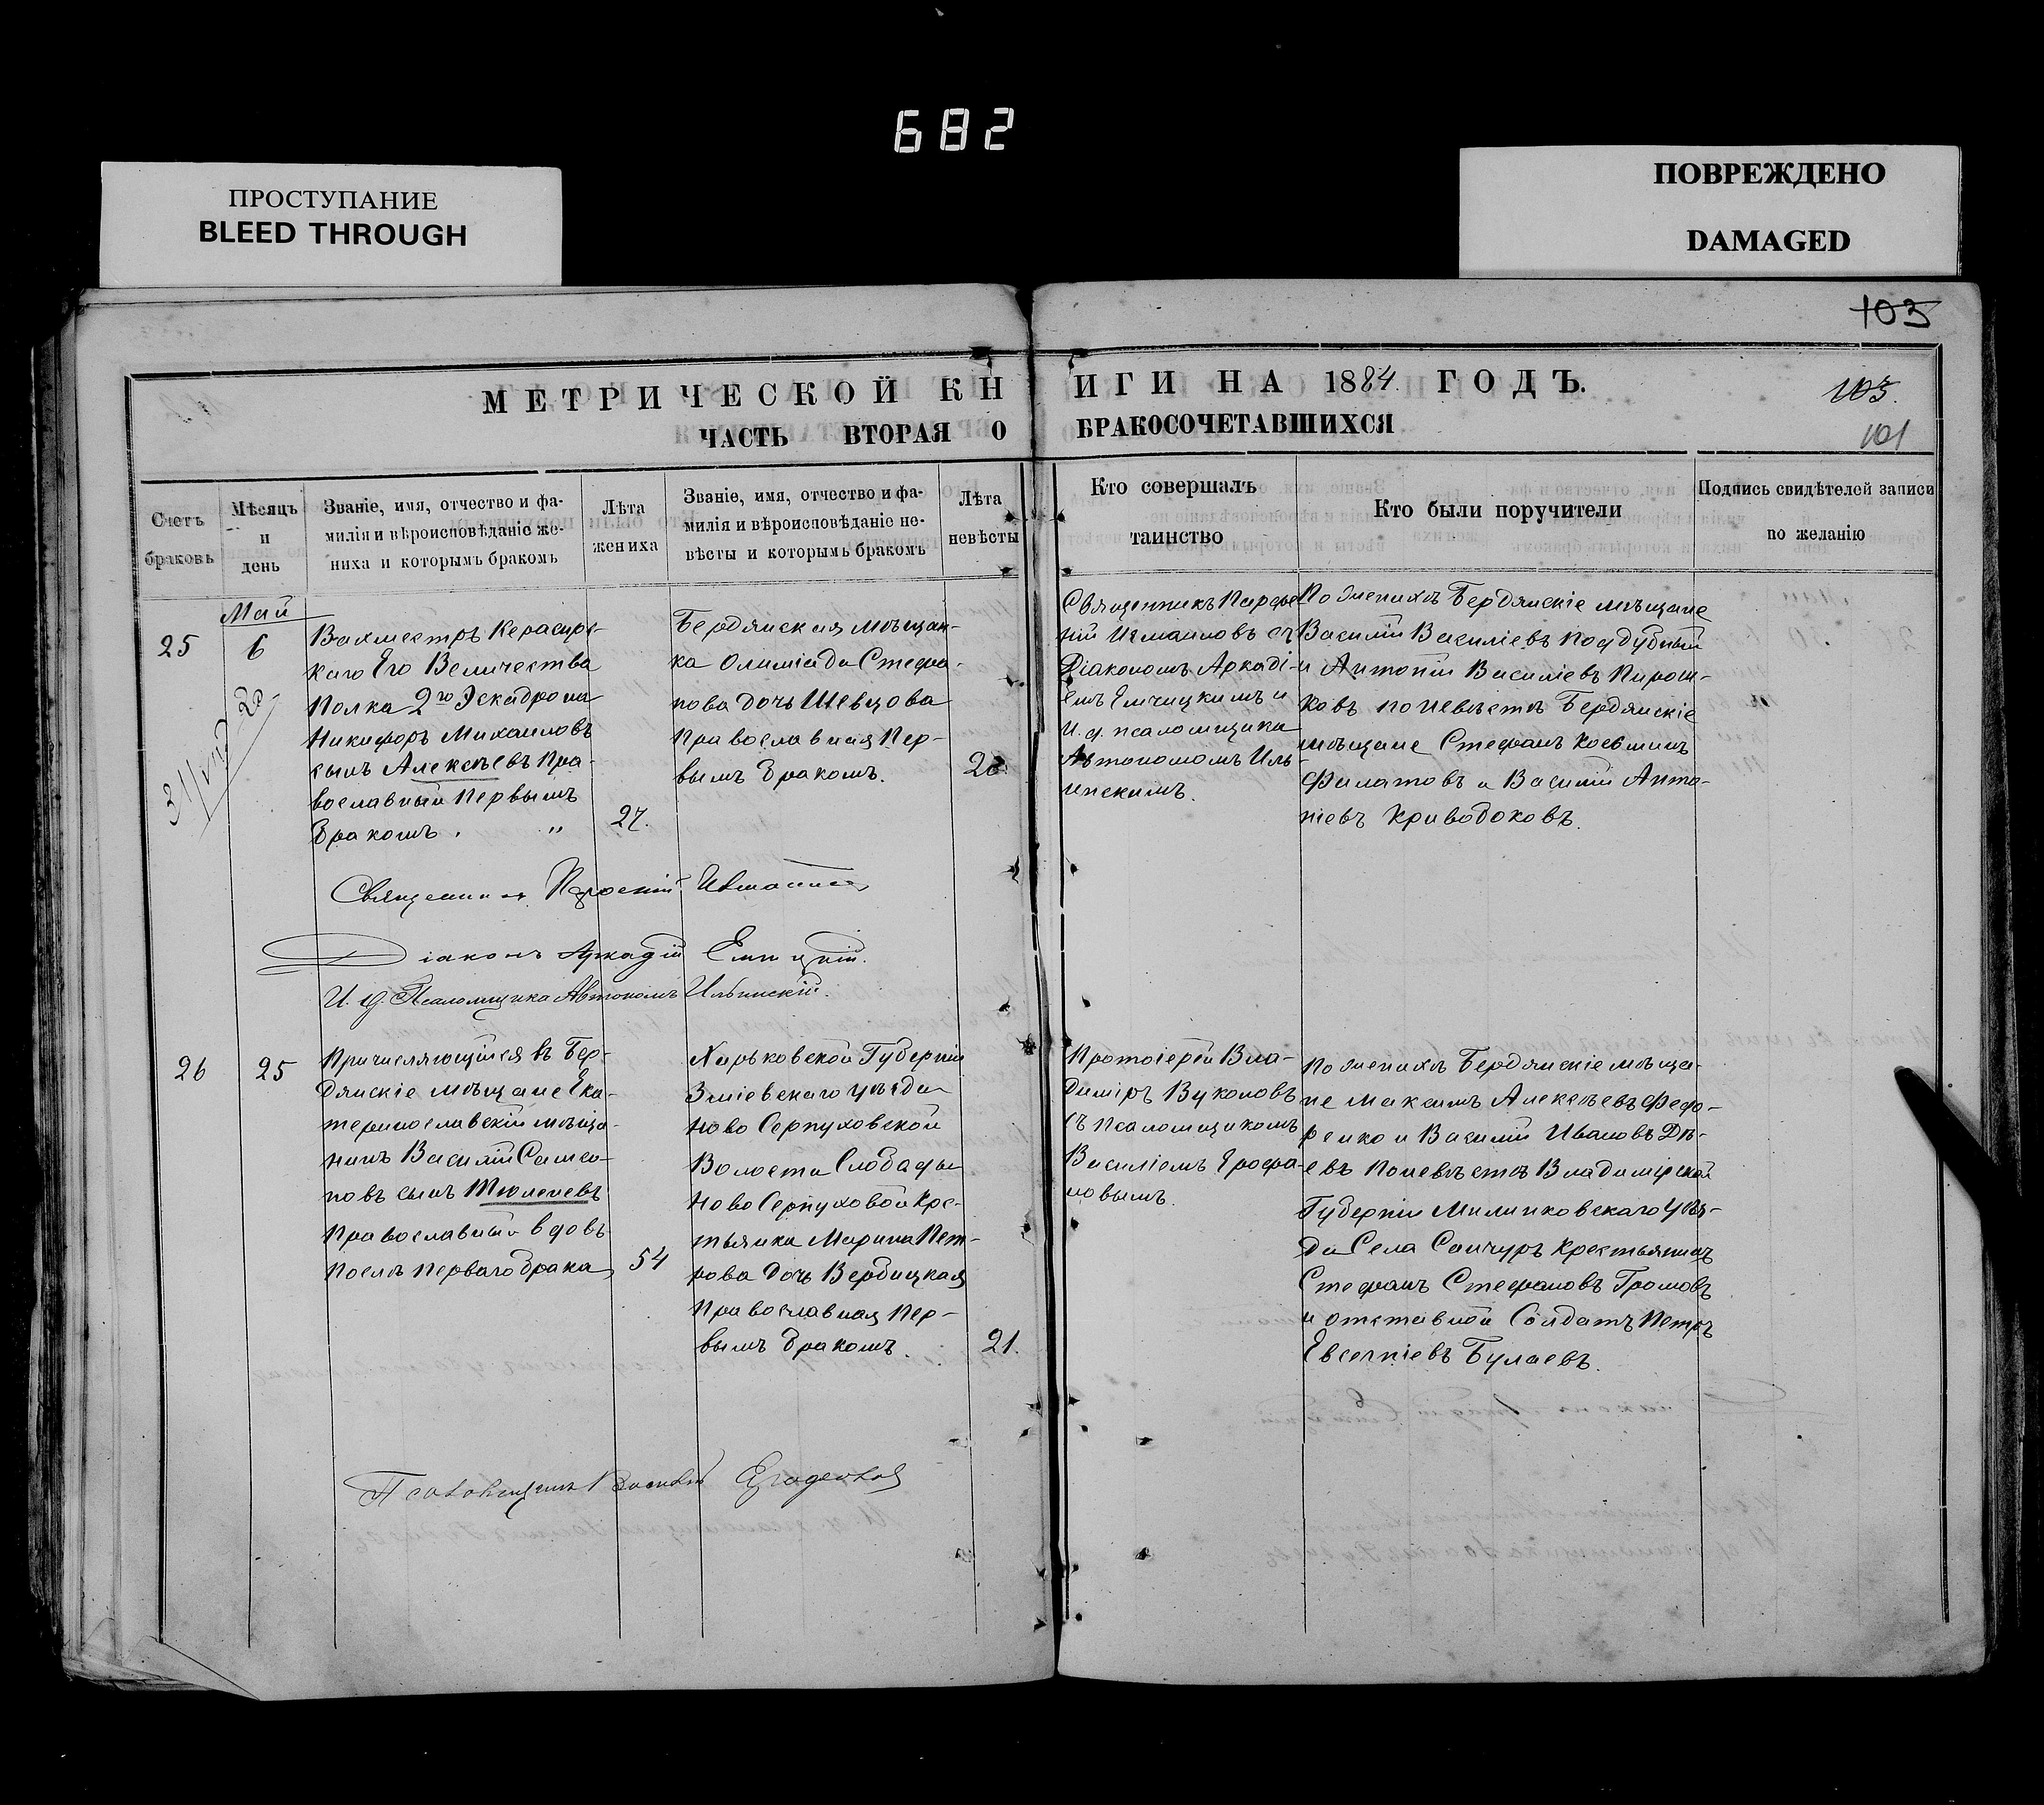 682
ПРОСТУПАНИЕ
BLEED THROUGH
ПОВРЕЖДЕНО
DAMAGED
103
МЕТРИЧЕСКОЙ КНИГИ НА 1884 ГОДЪ.
103.
ЧАСТЬ ВТОРАЯ О БРАКОСОЧЕТАВШИХСЯ
101
Счетъ
браковъ
Мѣсяцъ
и
день
Званіе, имя, отчество и фа-
милія и вѣроисповѣданіе же-
ниха и которымъ бракомъ
Лѣта
жениха
Званіе, имя, отчество и фа-
милія и вѣроисповѣданіе не-
вѣсты и которымъ бракомъ
Лѣта
невѣсты
Кто совершалъ
таинство
Кто были поручители
Подпись свидѣтелей записи
по желанію
Май
25
6
Вахмистръ Керасирс-
каго Его Величества
Полка 2го Эскадрона
Никифоръ Михаиловъ
сынъ Алексѣевъ Пра-
вославный Первымъ
бракомъ. "
27.
Бердянская мѣщан-
ка Олимпіада Стефа-
нова дочь Шевцова
Православная Пер-
вымъ бракомъ.
Священникъ Парфе-
ній Измаиловъ съ
Діакономъ Аркаді-
емъ
И. д. псаломщика
Автономомъ Иль-
инскимъ.
По женихѣ Бердянскіе мѣщане
Василій Василіевъ Поддубный
и Антоній Василіевъ Пирож-
ковъ по Невѣстѣ Бердянскіе
мѣщане Стефанъ
Филатовъ и Василій Анто-
ніевъ Кривобоковъ.
Священникъ Парфеній Измаиловъ
Діаконъ Аркадій
И. д. Псаломщика Автономъ Ильинскій.
26
25
Причисляющійся въ Бер-
дянскіе мѣщане Ека-
теринославскій мѣща-
нинъ Василій Симео-
новъ сынъ Тюленевъ
Православный вдовъ
послѣ перваго брака,
54
Харьковской Губерніи
Зміевскаго уѣзда
Ново Серпуховской
Волости Слободы
Ново Серпуховой Кре-
стьянка Марина Пет-
рова дочь Вербицкая
Православная Пер-
вымъ бракомъ.
21.
Протоіерей Вла-
диміръ Вуколовъ
съ псаломщикомъ
Василіемъ Ерофа-
новымъ.
По женихѣ Бердянскіе мѣща-
не Максимъ Алексѣевъ Федо-
ренко и Василій Ивановъ Дѣ-
евъ По невѣстѣ Владимірской
Губерніи Милинковскаго Уѣз-
да Села Санчуръ Крестьянинъ
Стефанъ Стефановъ Громовъ
и отставной Солдатъ Петръ
Евсегніевъ Булаевъ.
Псаломщикъ Василій